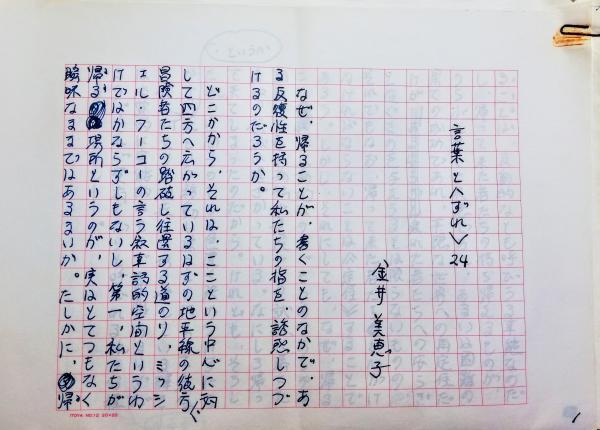 というの
言葉と〈ずれ〉24
金井美恵子
なぜ、帰ることが、書くことのなかで、あ
る反復性を持って私たちの指を誘惑しつづ
けるのだろうか。
どこかから、それは、ここという中心に対
して四方へ広がっているはずの地平線の彼方へ、
冒険者たちの踏破し往還する道のり、ミッシ
ェル・フーコーの言う叙事詩的空間というわ
けではかならずしもないし、第一、私たちが
帰る場所というのが、実はとてつもなく
曖昧なままではあるまいか。たしかに、帰
ITOYA NO.12 20×20
1